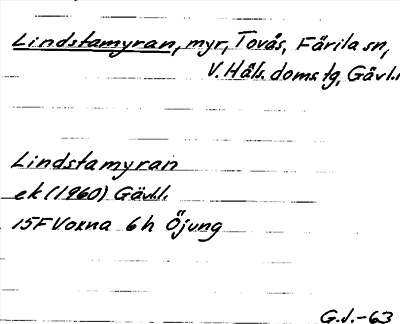 Lindstamyran, myr, Tovås, Färila sn,
V. Häls. domstg, Gävl.l.
Lindstamyran
ek (1960) Gävl.l.
15F Voxna 6h Öjung
G.J.-63